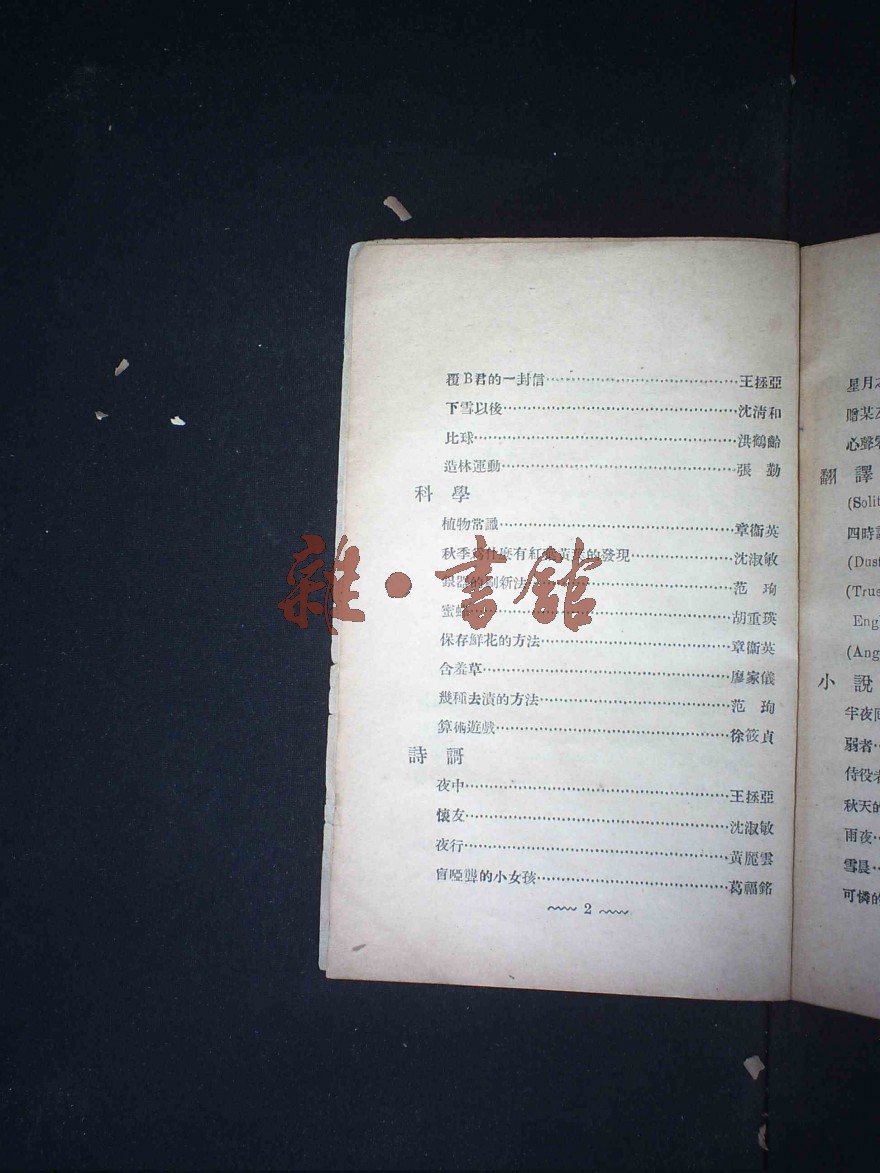 覆B君的一封信……王拯亞
下雪以後……沈淸和
比球……洪鶴齡
造林運動……張 勤
科學
植物常識……章衞英
秋季爲什麽有紅葉黃葉的發現……沈淑敏
銀器的刷新法……范 珣
蜜蜂……胡重瑛
保存鮮花的方法……章衞英
含羞草……廖家儀
幾種去漬的方法……范 珣
算術遊戲……徐筱貞
詩謌
夜中……王拯亞
懷友……沈淑敏
夜行……黃麗雲
盲啞聾的小女孩……葛福銘
2
星月
贈某
心聲
翻譯
(Solit
四時
(Dus
(True
Eng
(Ang
小說
半夜
弱者
侍役
秋天的
雨夜
雪晨
可憐的
雜·書館